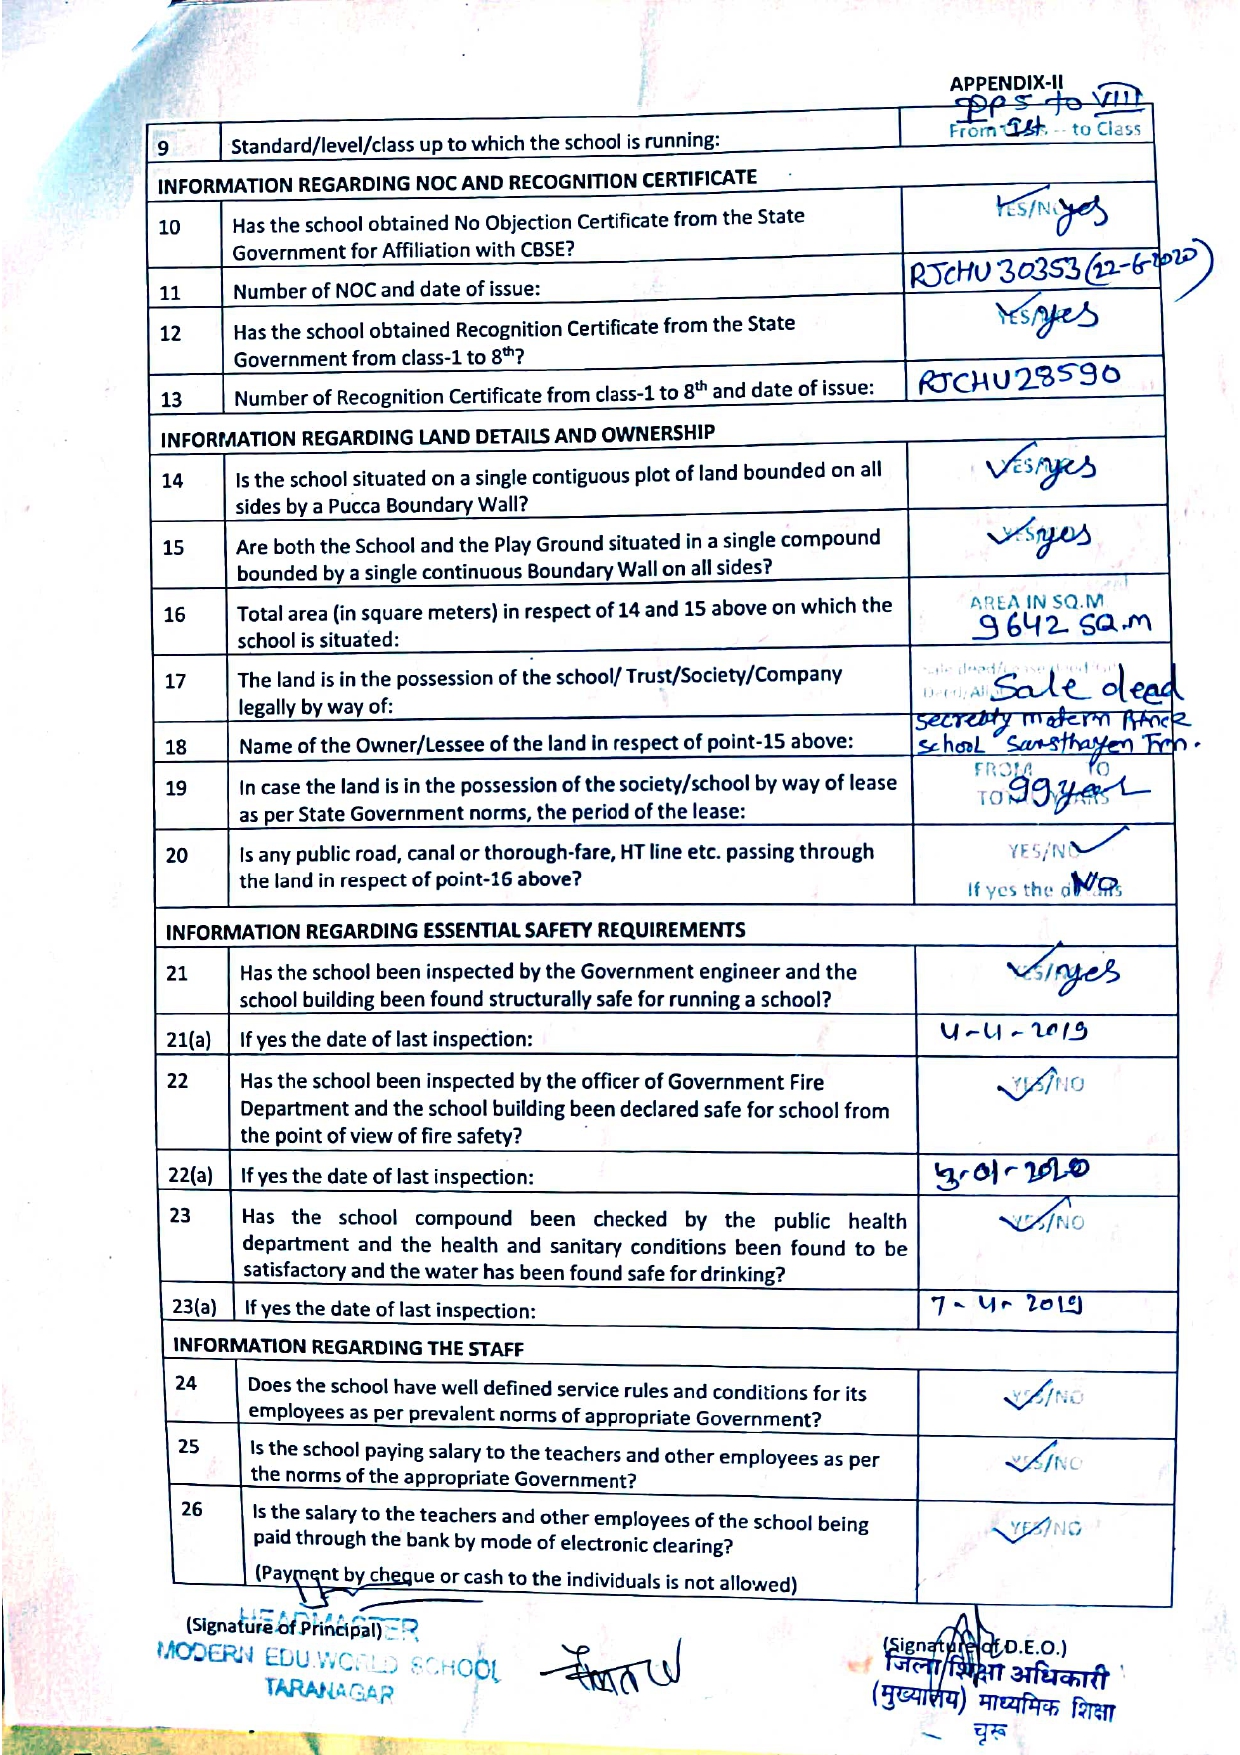 APPENDIX-II
PPS to VIII
From 1st -- to Class
9 Standard/level/class up to which the school is running:
INFORMATION REGARDING NOC AND RECOGNITION CERTIFICATE
10 Has the school obtained No Objection Certificate from the State YES/NO yes
Government for Affiliation with CBSE?
11 Number of NOC and date of issue: RJCHU30353(22-6-2020)
12 Has the school obtained Recognition Certificate from the State YES/ yes
Government from class-1 to 8th?
13 Number of Recognition Certificate from class-1 to 8th and date of issue: RJCHU28590
INFORMATION REGARDING LAND DETAILS AND OWNERSHIP
14 Is the school situated on a single contiguous plot of land bounded on all YES/ yes
sides by a Pucca Boundary Wall?
15 Are both the School and the Play Ground situated in a single compound yes
bounded by a single continuous Boundary Wall on all sides?
16 Total area (in square meters) in respect of 14 and 15 above on which the AREA IN SQ.M
school is situated: 9642 SQ.M
17 The land is in the possession of the school/ Trust/Society/Company
legally by way of: Sale dead
18 Name of the Owner/Lessee of the land in respect of point-15 above: school
19 In case the land is in the possession of the society/school by way of lease FROM TO
as per State Government norms, the period of the lease: 99 year
20 Is any public road, canal or thorough-fare, HT line etc. passing through YES/NO
the land in respect of point-16 above? If yes the NO
INFORMATION REGARDING ESSENTIAL SAFETY REQUIREMENTS
21 Has the school been inspected by the Government engineer and the YES/ yes
school building been found structurally safe for running a school?
21(a) If yes the date of last inspection: 4-4-2019
22 Has the school been inspected by the officer of Government Fire YES/NO
Department and the school building been declared safe for school from
the point of view of fire safety?
22(a) If yes the date of last inspection: 3-01-2020
23 Has the school compound been checked by the public health YES/NO
department and the health and sanitary conditions been found to be
satisfactory and the water has been found safe for drinking?
23(a) If yes the date of last inspection: 7-4-2019
INFORMATION REGARDING THE STAFF
24 Does the school have well defined service rules and conditions for its YES/NO
employees as per prevalent norms of appropriate Government?
25 Is the school paying salary to the teachers and other employees as per YES/NO
the norms of the appropriate Government?
26 Is the salary to the teachers and other employees of the school being YES/NO
paid through the bank by mode of electronic clearing?
(Payment by cheque or cash to the individuals is not allowed)
(Signature of Principal)
HEADMASTER
MODERN EDU.WORLD SCHOOL
TARANAGAR
(Signature of D.E.O.)
जिला शिक्षा अधिकारी
(मुख्यालय) माध्यमिक शिक्षा
चूरू